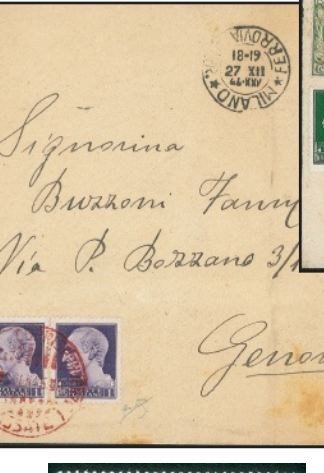 MILANO
FERROVIA
18-19
27 XII
Signorina
Buzzoni Fanny
Via P. Bozzano 3/
Genov